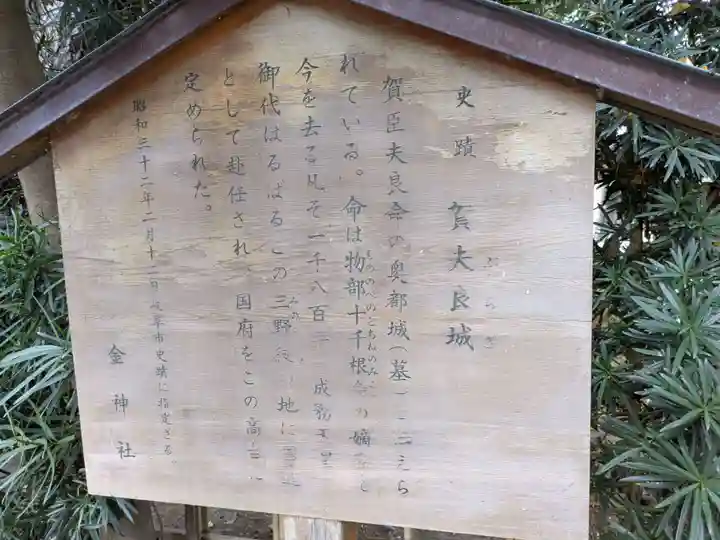 史蹟　賀夫良城
ぶらぎ
賀臣夫良命の奥都城(墓)と云えら
れている。命は物部十千根命の嫡
もののべのとちねのみ
今を去る凡そ一千八百 成務天皇
御代はるばるこの三野 地に
みの
として赴任され、国府をこの高
定められた。
昭和三十二年二月十二日 岐阜市史蹟に指定さる。
金神社